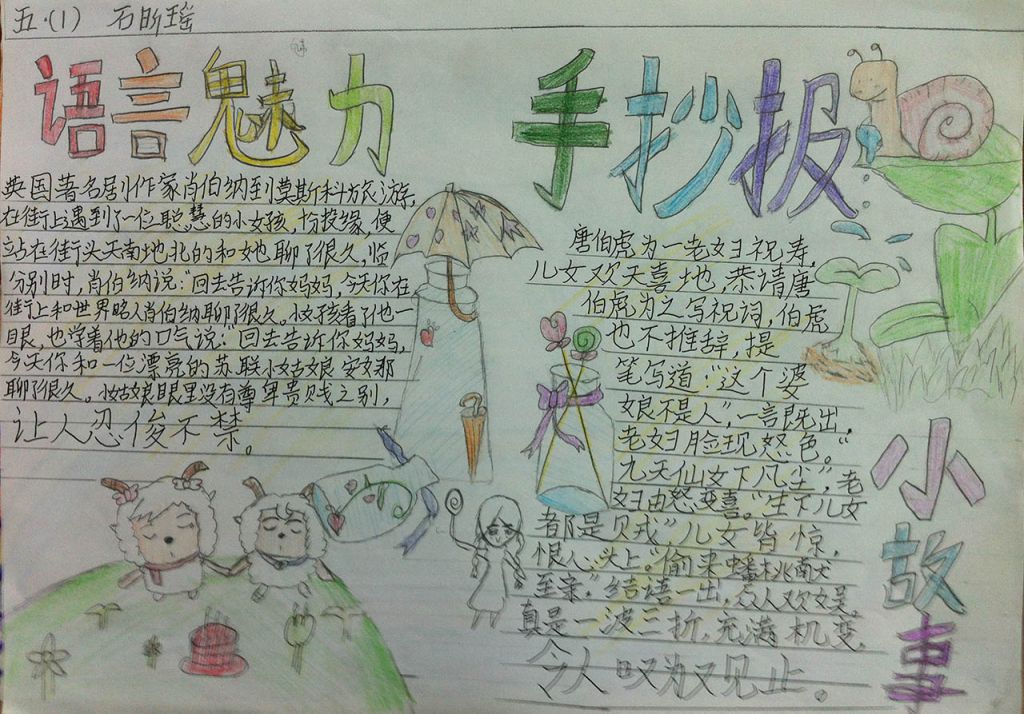 五·(1) 石昕瑶
语言魅力
手抄报
英国著名剧作家肖伯纳到莫斯科旅游,
在街上遇到了一位聪慧的小女孩,十分投缘,便
站在街头天南地北的和她聊了很久,临
分别时,肖伯纳说:“回去告诉你妈妈,今天你在
街上和世界名人肖伯纳聊了很久。小女孩看了他一
眼,也学着他的口气说:“回去告诉你妈妈,
今天你和一位漂亮的苏联小姑娘安娜
聊了很久。小姑娘眼里没有尊卑贵贱之别,
让人忍俊不禁。
唐伯虎为一老妇祝寿,
儿女欢天喜地,恭请唐
伯虎为之写祝词,伯虎
也不推辞,提
笔写道:“这个婆
娘不是人”,一言既出,
老妇脸现怒色。“
九天仙女下凡尘”,老
妇由怒变喜。“生下儿女
都是贼”儿女皆惊,
恨心头上。“偷来蟠桃献
至亲”结语一出,众人欢娱。
真是一波三折,充满机变,
令人叹为观止。
小故事